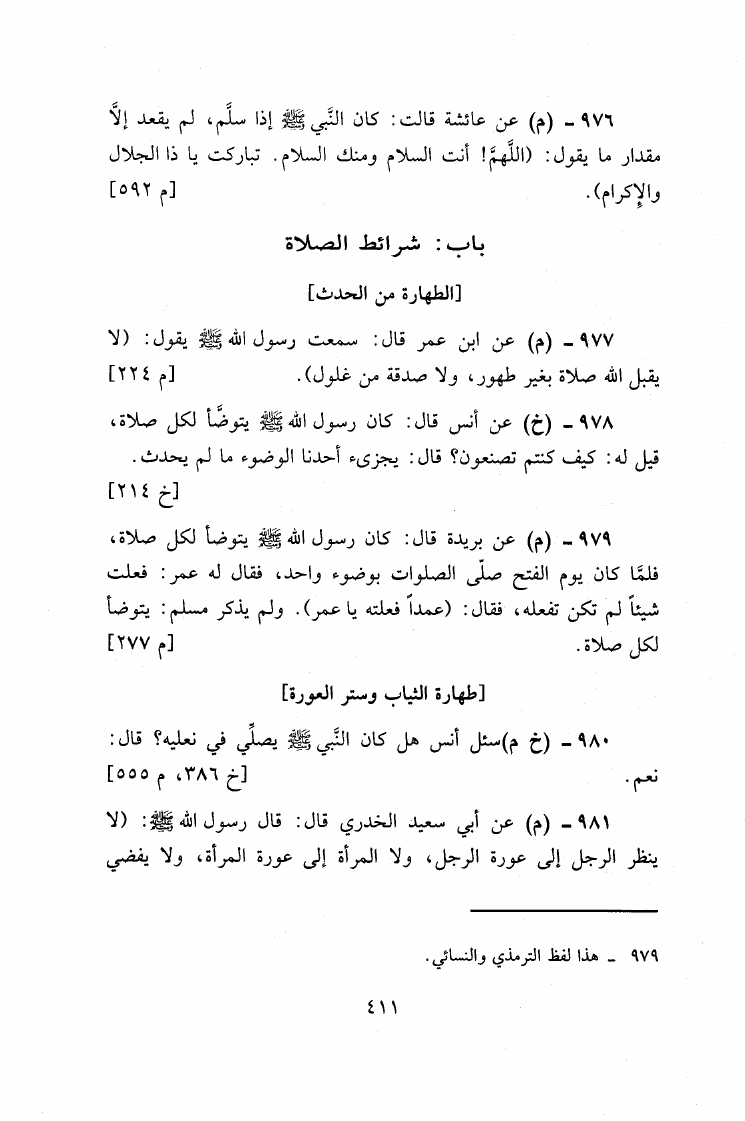 ٩٧٦ - (م) عن عائشة قالت: كان النَّبي ﷺ إذا سلَّم، لم يقعد إلاَّ
مقدار ما يقول: (اللَّهمَّ! أنت السلام ومنك السلام. تباركت يا ذا الجلال
والإكرام). [م ٥٩٢]
باب: شرائط الصلاة
[الطهارة من الحدث]
٩٧٧ - (م) عن ابن عمر قال: سمعت رسول الله ﷺ يقول: (لا
يقبل الله صلاة بغير طهور، ولا صدقة من غلول). [م ٢٢٤]
٩٧٨ - (خ) عن أنس قال: كان رسول الله ﷺ يتوضَّأ لكل صلاة،
قيل له: كيف كنتم تصنعون؟ قال: يجزىء أحدنا الوضوء ما لم يحدث.
[خ ٢١٤]
٩٧٩ - (م) عن بريدة قال: كان رسول الله ﷺ يتوضأ لكل صلاة،
فلمَّا كان يوم الفتح صلَّى الصلوات بوضوء واحد، فقال له عمر: فعلت
شيئاً لم تكن تفعله، فقال: (عمداً فعلته يا عمر). ولم يذكر مسلم: يتوضأ
لكل صلاة. [م ٢٧٧]
[طهارة الثياب وستر العورة]
٩٨٠ - (خ م) سئل أنس هل كان النَّبي ﷺ يصلِّي في نعليه؟ قال:
نعم. [خ ٣٨٦، م ٥٥٥]
٩٨١ - (م) عن أبي سعيد الخدري قال: قال رسول الله ﷺ: (لا
ينظر الرجل إلى عورة الرجل، ولا المرأة إلى عورة المرأة، ولا يفضي
٩٧٩ - هذا لفظ الترمذي والنسائي.
٤١١